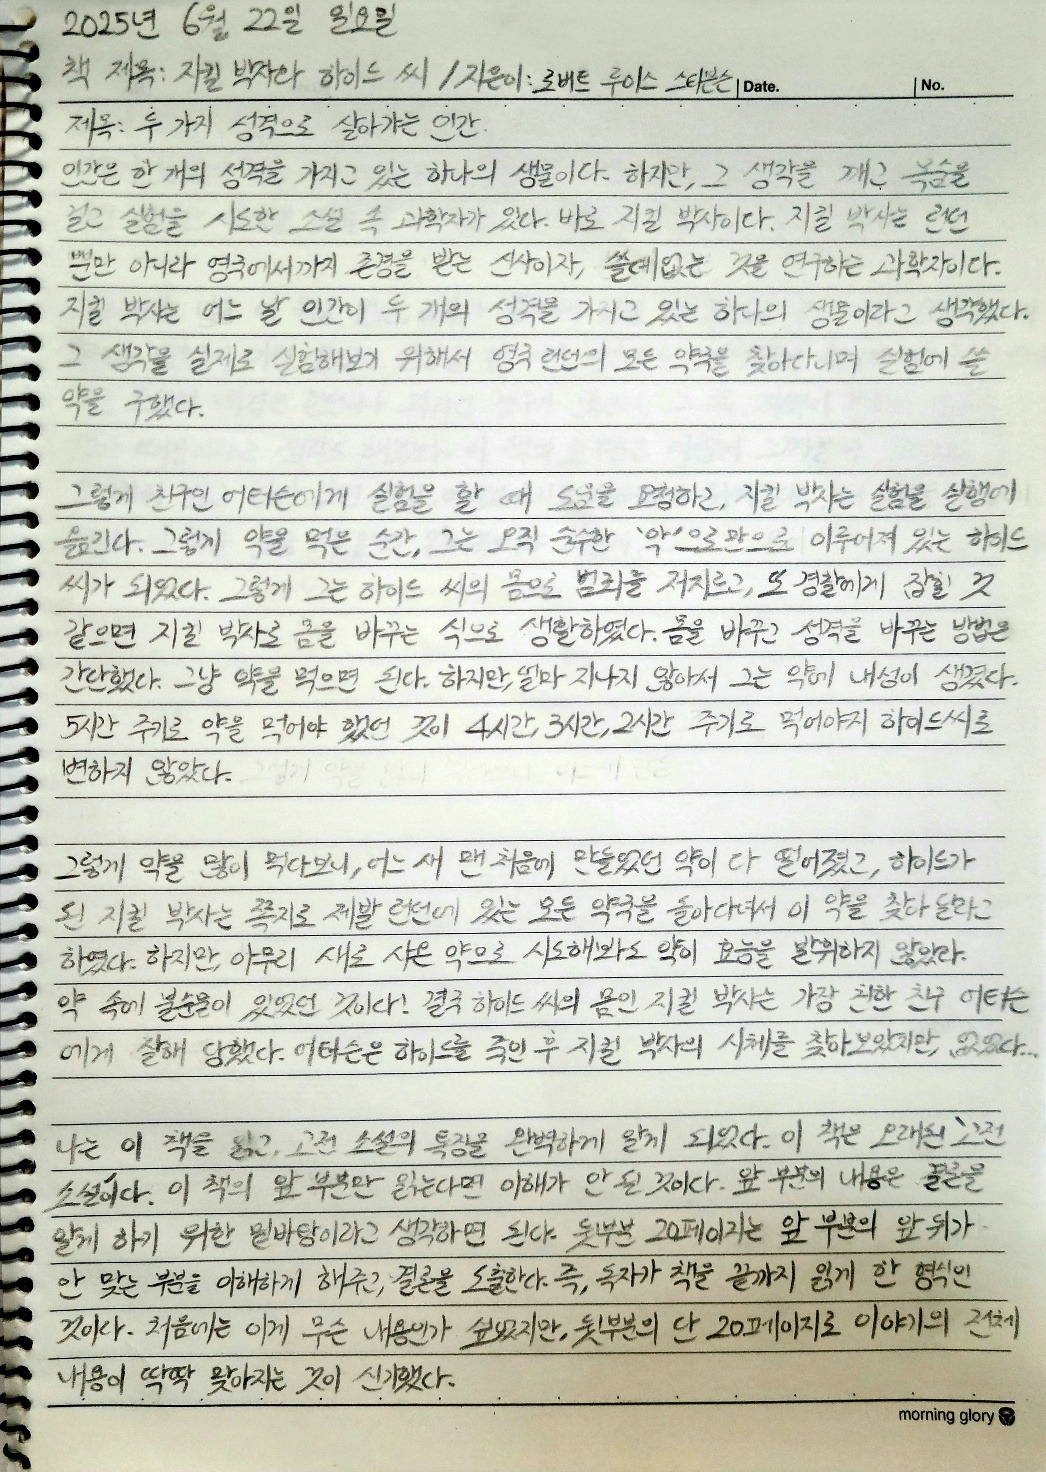 2025년 6월 22일 일요일
책 제목: 지킬 박사와 하이드 씨 / 지은이: 로버트 루이스 스티븐슨 Date. No.
제목: 두 가지 성격으로 살아가는 인간.
인간은 한 개의 성격을 가지고 있는 하나의 생물이다. 하지만, 그 생각을 깨고 목숨을
걸고 실험을 시도한 소설 속 과학자가 있다. 바로 지킬 박사이다. 지킬 박사는 런던
뿐만 아니라 영국에서까지 존경을 받는 신사이자, 쓸데없는 것을 연구하는 과학자이다.
지킬 박사는 어느 날 인간이 두 개의 성격을 가지고 있는 하나의 생물이라고 생각했다.
그 생각을 실제로 실험해보기 위해서 영국 런던의 모든 약국을 찾아다니며 실험에 쓸
약을 구했다.
그렇게 친구인 어터슨에게 실험을 할 때 도움을 요청하고, 지킬 박사는 실험을 실행에
옮긴다. 그렇게 약을 먹은 순간, 그는 오직 순수한 '악'으로만으로 이루어져 있는 하이드
씨가 되었다. 그렇게 그는 하이드 씨의 몸으로 범죄를 저지르고, 또 경찰에게 잡힐 것
같으면 지킬 박사로 몸을 바꾸는 식으로 생활하였다. 몸을 바꾸고 성격을 바꾸는 방법은
간단했다. 그냥 약을 먹으면 된다. 하지만, 얼마 지나지 않아서 그는 약에 내성이 생겼다.
5시간 주기로 약을 먹어야 했던 것이 4시간, 3시간, 2시간 주기로 먹어야지 하이드씨로
변하지 않았다.
그렇게 약을 많이 먹다보니, 어느 새 맨 처음에 만들었던 약이 다 떨어졌고, 하이드가
된 지킬 박사는 쪽지로 제발 런던에 있는 모든 약국을 돌아다녀서 이 약을 찾아달라고
하였다. 하지만, 아무리 새로 사온 약으로 시도해봐도 약이 효능을 발휘하지 않았다.
약 속에 불순물이 있었던 것이다! 결국 하이드 씨의 몸인 지킬 박사는 가장 친한 친구 어터슨
에게 살해 당했다. 어터슨은 하이드를 죽인 후 지킬 박사의 시체를 찾아보았지만, 없었다...
나는 이 책을 읽고, 고전 소설의 특징을 완벽하게 알게 되었다. 이 책은 오래된 '고전
소설'이다. 이 책의 앞 부분만 읽는다면 이해가 안 될 것이다. 앞 부분의 내용은 결론을
알게 하기 위한 밑바탕이라고 생각하면 된다. 뒷부분 20페이지는 앞 부분의 앞 뒤가
안 맞는 부분을 이해하게 해주고, 결론을 도출한다. 즉, 독자가 책을 끝까지 읽게 한 형식인
것이다. 처음에는 이게 무슨 내용인가 싶었지만, 뒷부분의 단 20페이지로 이야기의 전체
내용이 딱딱 맞아지는 것이 신기했다.
morning glory